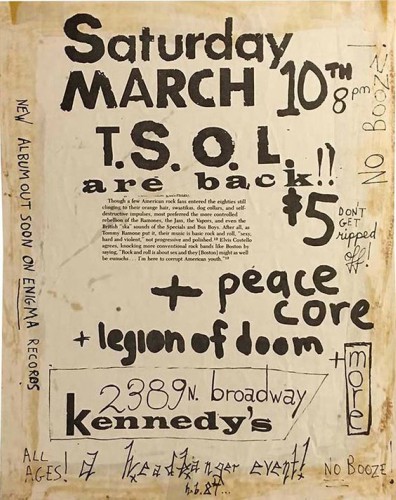 Saturday
MARCH 10TH
8pm
NO BOOZE!
T.S.O.L.
are back!!
Though a few American rock fans entered the eighties still
clinging to their orange hair, swastikas, dog collars, and self-
destructive impulses, most preferred the more controlled
rebellion of the Ramones, the Jam, the Vapors, and even the
British "ska" sounds of the Specials and Bus Boys. After all, as
Tommy Ramone put it, their music is basic rock and roll, "sexy,
hard and violent," not progressive and polished. Elvis Costello
agrees, knocking more conventional rock bands like Boston by
saying, "Rock and roll is about sex and they [Boston] might as well
be eunuchs . . . I'm here to corrupt American youth."
$5
DON'T
GET
ripped
off!
NEW ALBUM OUT SOON ON ENIGMA RECORDS
+ peace
core
+ legion of doom
+ more
2389 N. broadway
Kennedy's
ALL
AGES!
a headbanger event!
NO BOOZE!